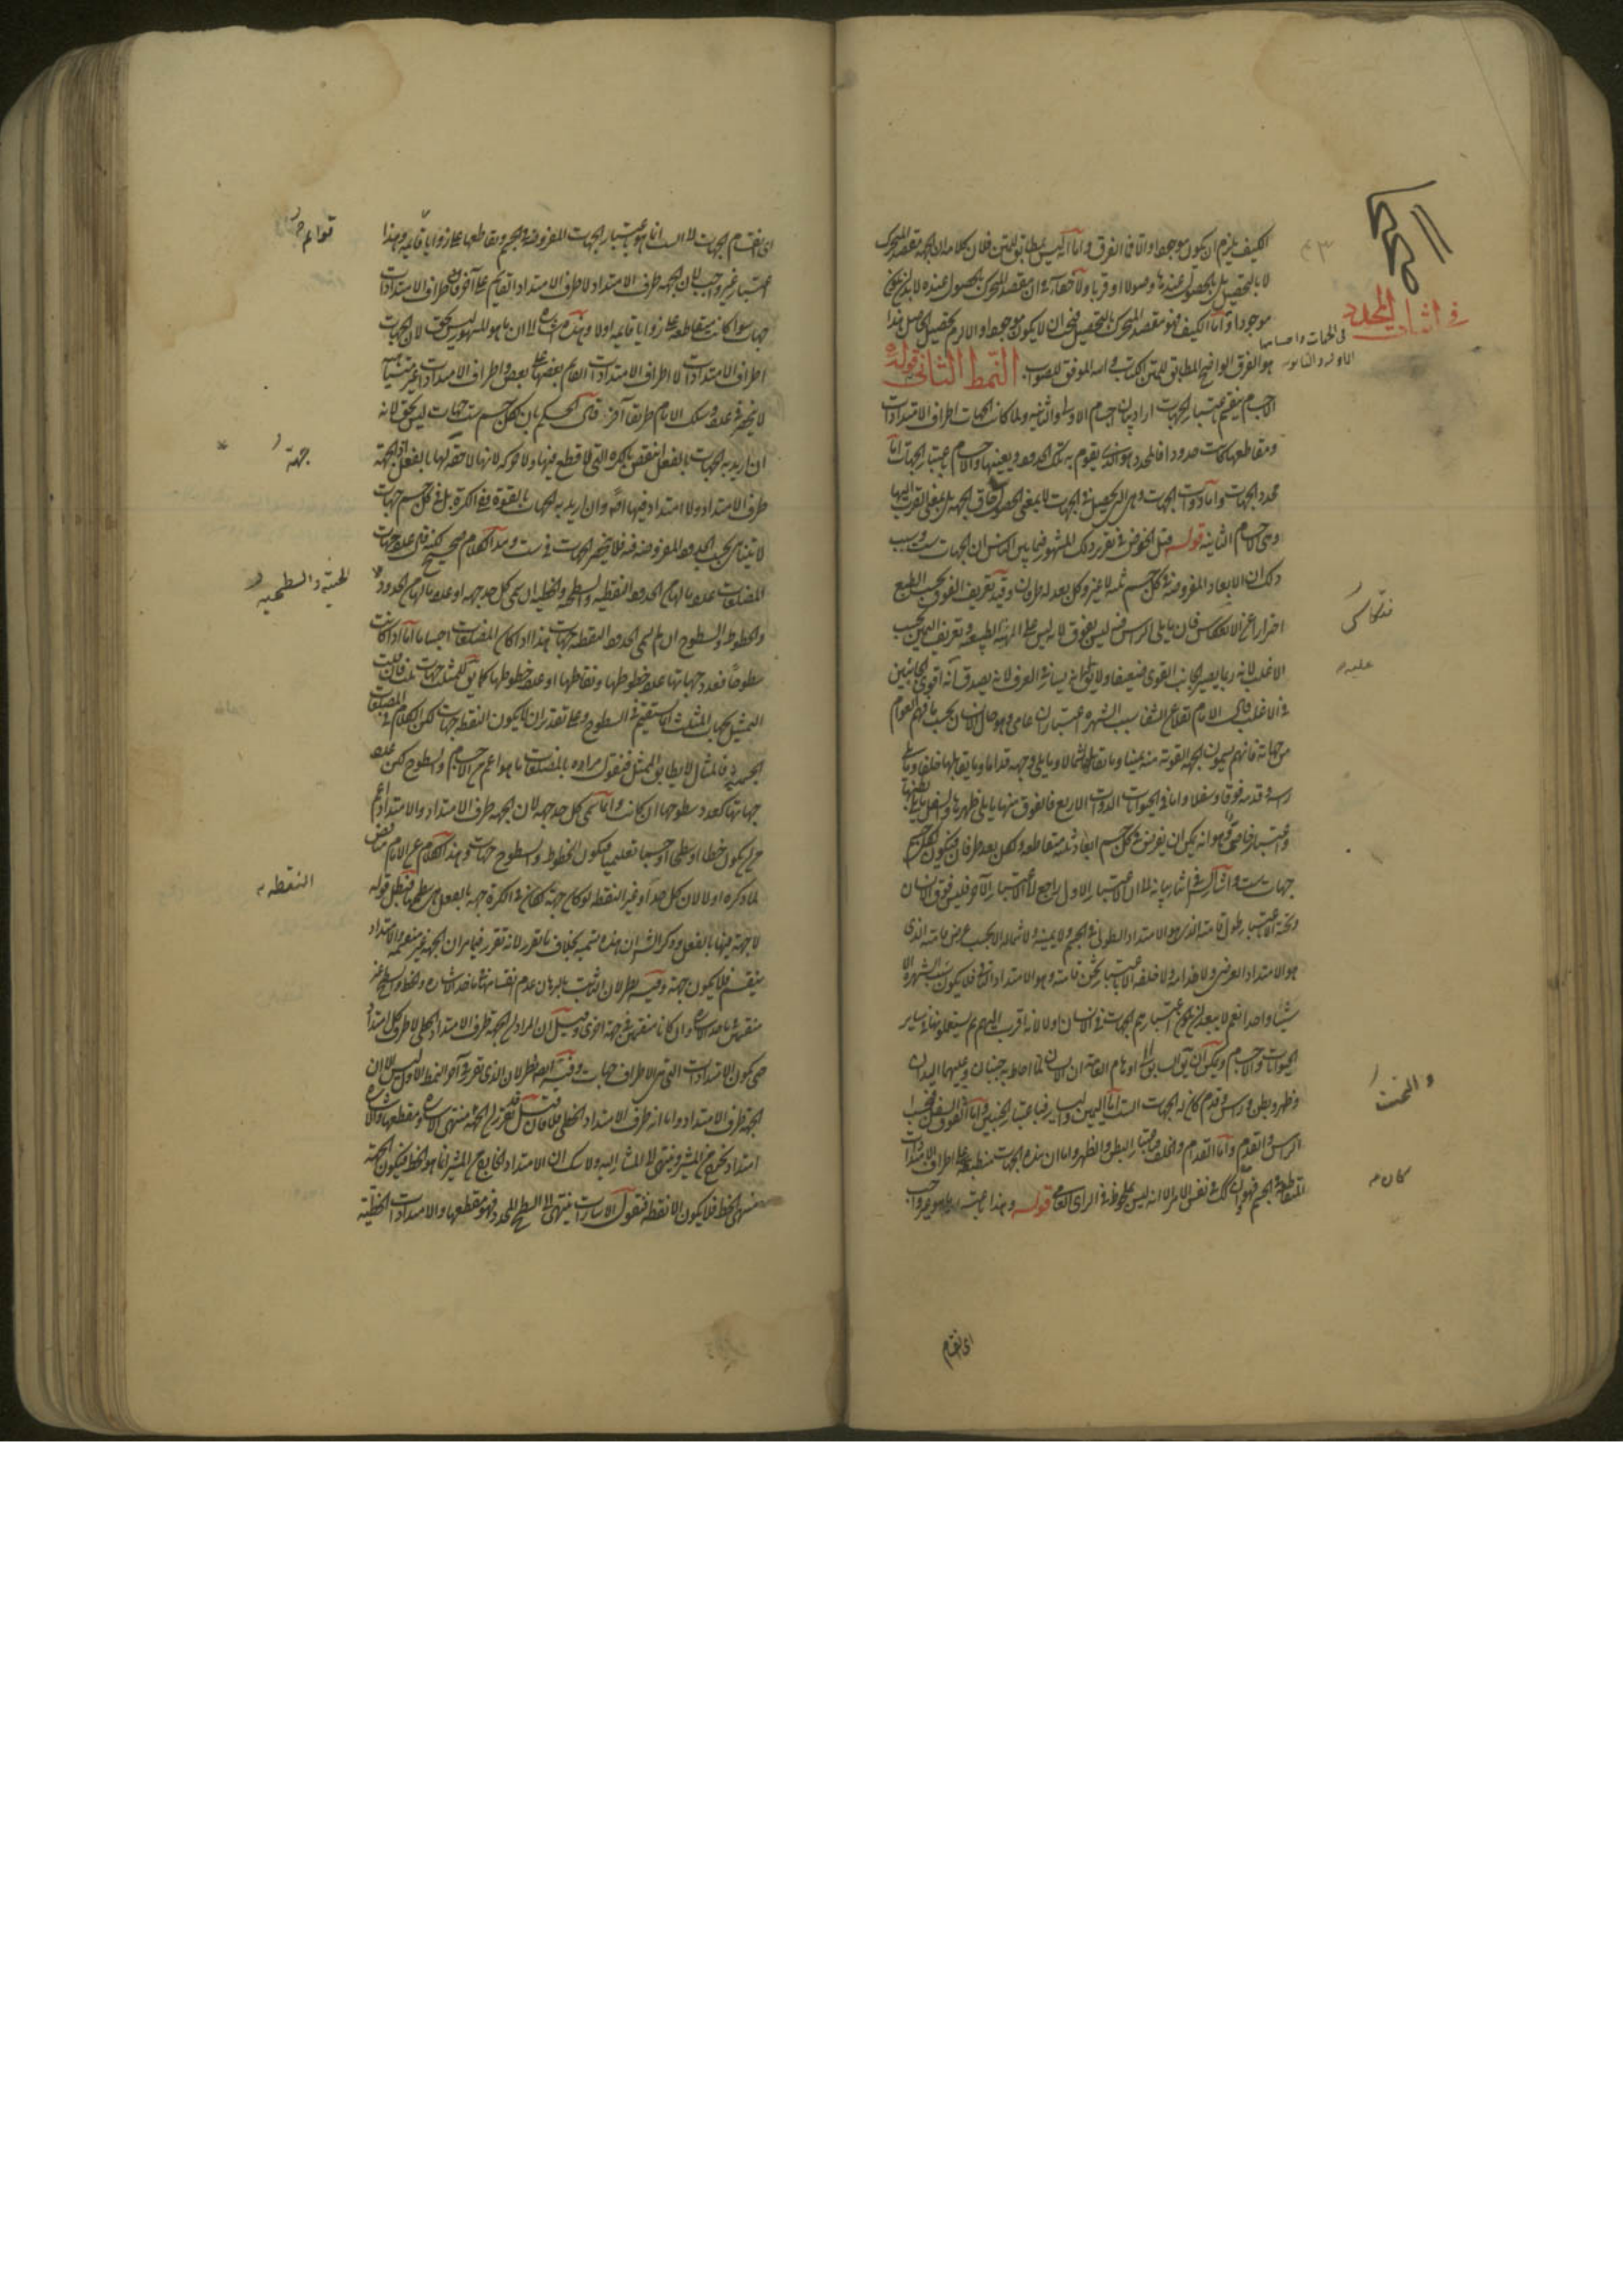 في اثبات المحدد
في الجهات واجسامها
الكيف يلزم ان يكون موجودا واما في الفرق واما انه ليس بمطابق للمتن فلان كلامه ان الجهة مقصد المتحرك
لا بالتحصيل بل بالحصول عندها وصولا او قربا ولا خفاء في ان مقصد المتحرك بالحصول عنده لا بد ان يكون
موجودا واما الكيف فهو مقصد المتحرك بالتحصيل فيجب ان لا يكون موجودا والا لزم تحصيل الحاصل هذا
هو الفرق الواضح المطابق لمتن الكتاب والله الموفق للصواب النمط الثاني قوله
الاجسام ينقسم باعتبار الجهات اراد بيان اجسام الاولى والثانية ولما كانت الجهات اطراف الامتدادات
ومقاطعها كانت حدودا فالمحدد هو الذي يقوم به تلك الحدود ويعينها والاجسام باعتبار الجهات اما
محدد الجهات واما ذوات الجهات وهي التي تحصل في الجهات لا بمعنى الحصول في حاق الجهة بل بمعنى القرب اليها
وهي اجسام الثانية قوله قبل الخوض في تقرير ذلك المشهور فيما بين الناس ان الجهات ست وسبب
ذلك ان الابعاد المفروضة في كل جسم ثلثة لا غير وكل بعد له طرفان وقيد تعريف الفوق بحسب الطبع
احترازا عن الانعكاس فان ما يلي الراس فيه ليس بفوق لانه ليس على الهيئة الطبيعية وتعريف اليمين بحسب
الاغلب لانه ربما يصير الجانب القوي ضعيفا ولا يق انه يساره في العرف لانه يصدق انه اقوى الجانبين
في الاغلب قال الامام لسبب الشهرة اعتباران عامي وهو حال الانسان بحسب ما فهم العوام
من جهاته فانهم يسمون الجهة القوية منه يمينا وما تقابلها شمالا وما يلي وجهه قداما وما يقابلها خلفا وما يلي
راسه وقدمه فوقا وسفلا واما في الحيوانات ذوات الاربع فالفوق منها ما يلي ظهرها والسفل ما يلي بطنها
واعتبار خاصي وهو انه يمكن ان يفرض في كل جسم ابعاد ثلثة متقاطعة ولكل بعد طرفان فيكون لكل جسم
جهات ست واشار في اثناء بيانه الى ان الاعتبار الاول راجع الى الاعتبار الآخر فليس فوق الانسان
وتحته الا باعتبار طول قامته الذي هو الامتداد الطولي في الجسم ولا يمينه ولا شماله الا بحسب عرض قامته الذي
هو الامتداد العرضي ولا قدامه ولا خلفه الا باعتبار ثخن قامته وهو الامتداد الباقي فلا يكون سبب الشهرة الا
شيئا واحدا نعم لا يبعد ان يكون اعتبارهم الجهات في الانسان اولا لانه اقرب اليهم ثم يستعملونها في ساير
الحيوانات والاجسام ويمكن ان يقال سبق الى اوهام العامة ان الانسان لما احاط به جنبان وعليهما اليدان
وظهر وبطن وراس وقدم كان له الجهات الست اما اليمين واليسار فباعتبار الجنبين واما الفوق والسفل فبحسب
الراس والقدم واما القدام والخلف فباعتبار البطن والظهر واما ان هذه الجهات منطبقة على اطراف الامتدادات
المتقاطعة في الجسم فهو وان كان كذلك في نفس الامر الا انه ليس بملحوظ في الراي العامي قوله وهذا باعتبار ما هو غير واجب
فتكاسى
عليه
والتحت
كان
اى انقسام
اى انقسام الجهات الى الست انما هو باعتبار الجهات المفروضة في الجسم وتقاطعها على زوايا قايمة وهذا
اعتبار غير واجب لان الجهة طرف الامتداد لا طرف الامتداد القايم على آخر فكل اطراف الامتدادات
جهات سواء كانت متقاطعة على زوايا قايمة او لا وهذه اشارة الى ان ما هو المشهور ليس بحق لان الجهات
اطراف الامتدادات لا اطراف الامتدادات القايم بعضها على بعض واطراف الامتدادات غير متناهية
لا ينحصر في عدد وسلك الامام طريقا آخر قال الحكم بان لكل جسم ست جهات ليس بحق لانه
ان اريد به الجهات بالفعل انتقض بالكرة التي لا قطع فيها ولا حركة لانها لا جهة لها بالفعل اذ الجهة
طرف الامتداد ولا امتداد فيها اصلا وان اريد به الجهات بالقوة ففي الكرة بل في كل جسم جهات
لا يتناهى بحسب الحدود المفروضة فيه فلا ينحصر الجهات في ست وهذا الكلام صحيح لكنه قال عدد جهات
المضلعات عدد نهايات الحدود النقطية والسطحية والخطية ان سمى كل حد جهة او عدد نهايات الحدود
والخطوط والسطوح ان لم يسم الحدود النقطية جهات هذا اذا كان المضلعات اجساما اما اذا كانت
سطوحا فعدد جهاتها عدد خطوطها ونقاطها او عدد خطوطها كما يق للمثلث جهات ثلث فان قلت
التمثيل بجهات المثلث انما يستقيم في السطوح وعلى تقدير ان لا يكون النقطة جهات لكن الكلام في المضلعات
الجسمية فالمثال لا يطابق الممثل فنقول مراده بالمضلعات ما هو اعم من الاجسام والسطوح لكن عدد
جهاتها كعدد سطوحها ان كانت وانما سمى كل حد جهة لان الجهة طرف الامتداد والامتداد اعم
من ان يكون خطا او سطحا او جسما تعليميا فيكون الخطوط والسطوح جهات وهذا الكلام من الامام مناقض
لما ذكره اولا لان كل حد او غير النقطة لو كان جهة لكان في الكرة جهة بالفعل هي سطحها فبطل قوله
لا جهة فيها بالفعل وذكر الشارح ان هذه تسمية بخلاف ما تقرر لانه تقرر فيما مر ان الجهة غير منقسمة والامتداد
ينقسم فلا يكون جهة وفيه نظر لان الثابت بالبرهان عدم انقسامها في ماخذ الاشارة والخط والسطح غير
منقسمين في ماخذ الاشارة وان كانا منقسمين في جهة اخرى وقيل ان المراد من الجهة طرف الامتداد الخطي لا طرف كل امتداد
حتى يكون الامتدادات التي هي الاطراف جهات وفيه ايضا نظر لان الذي تقرر في آخر النمط الاول ليس الا ان
الجهة طرف الامتداد واما انه طرف الامتداد الخطي فلا فان قيل قد تقرر ان الجهة منتهى الاشارة ومقطعها والاشارة
امتداد يخرج من المشير وينتهي الى المشار اليه ولا شك ان الامتداد الخارج من المشير انما هو الخط فيكون الجهة
منتهى الخط فلا يكون الا نقطة فنقول الاشارات ينتهي الى السطح المحدد فهو مقطعها والامتدادات الخطية
قوائم
جهة
الخطية والسطحية
النقطة